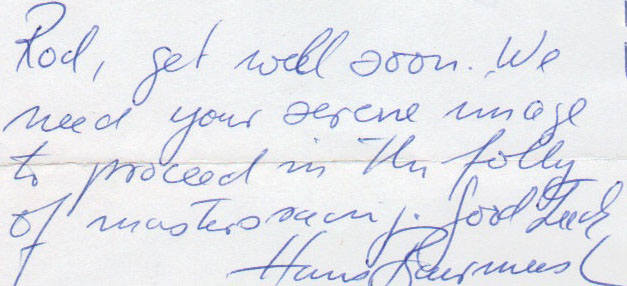 Rod, get well soon. We
need your serene image
to proceed in the folly
of masters racing. Good Luck
Hans